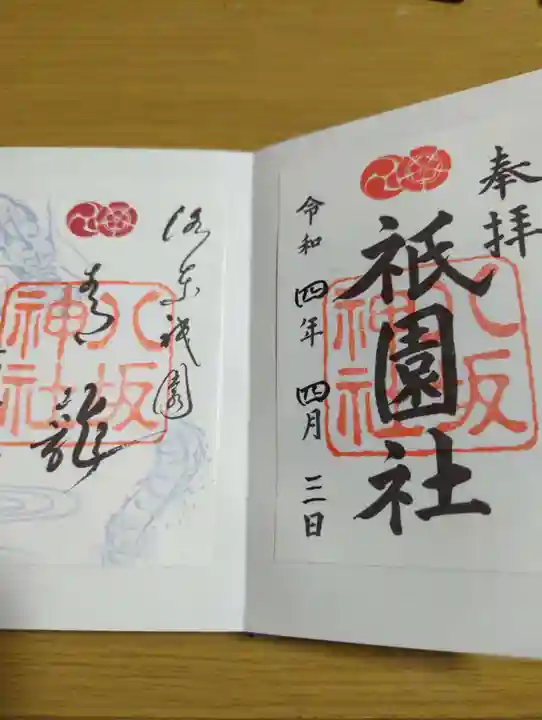 奉拝
祇園社
八坂神社
令和四年四月二日
洛東祇園
八坂神社
青龍